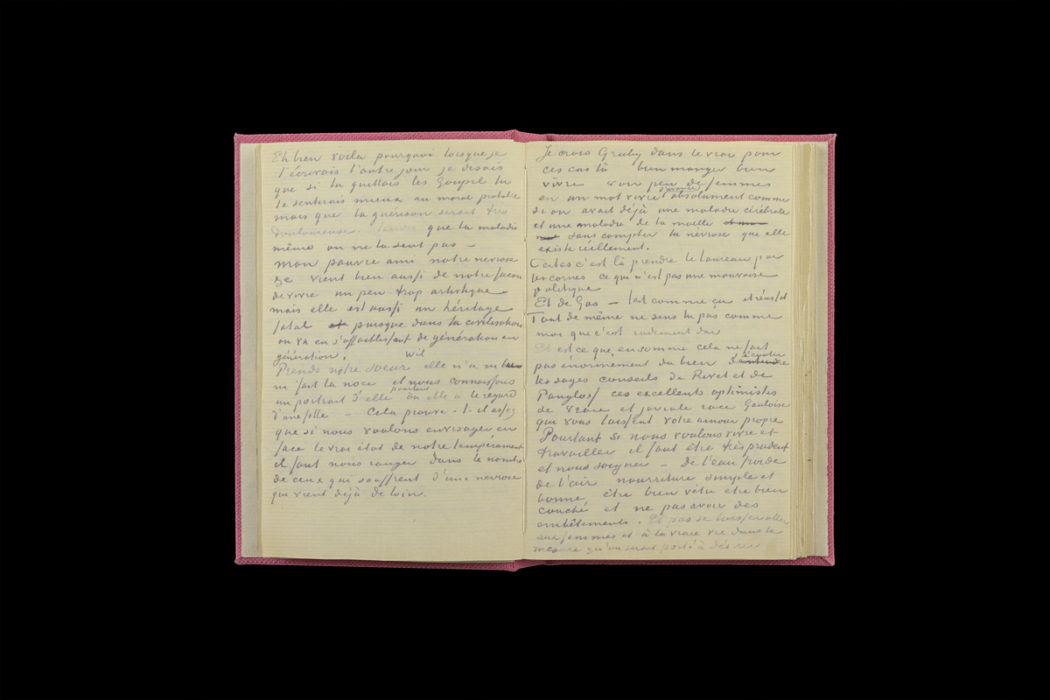 Eh bien voila pourquoi lorsque je
t'écrivais l'autre jour je disais
que si tu quittais les Goupil tu
te sentirais mieux au moral
mais que la guerison serait très
douloureuse. que la maladie
même on ne la sent pas –
mon pauvre ami notre nevrose
vient bien aussi de notre facon
de vivre un peu trop artistique
mais elle est aussi un héritage
fatal puisque dans la civilisation
on va en s'affaiblissant de génération en
génération.
Prends notre soeur Wil elle n'a ni bu
ni fait la noce et nous connaissons
un portrait d'elle pourtant ou elle a le regard
d'une folle – Cela prouve-t-il assez
que si nous voulons envisager en
face le vrai état de notre tempérament
il faut nous ranger dans le nombre
de ceux qui souffrent d'une nevrose
qui vient déjà de loin.
Je crois Gruby dans le vrai pour
ces cas là bien manger bien
vivre voir peu de femmes
en un mot vivre d'avance absolument comme
si on avait déjà une maladie cérébrale
et une maladie de la moelle
sans compter la nevrose que elle
existe réellement.
Certes c'est là prendre le taureau par
les cornes ce qui n'est pas une mauvaise
politique
Et de Gas – fait comme ça et réussit
Tout de même ne sens tu pas comme
moi que c'est rudement dur
Et est ce que, en somme cela ne fait
pas énormement du bien d'écouter
les sages conseils de Rivet et de
Pangloss ces excellents optimistes
de vraie et joviale race Gauloise
qui vous laissent votre amour propre
Pourtant si nous voulons vivre et
travailler il faut être très prudent
et nous soigner – de l'eau froide
de l'air nourriture simple et
bonne, être bien vêtu etre bien
couché et ne pas avoir des
embêtements. Et pas se laisser aller
aux femmes et à la vraie vie dans la
mesure qu'on serait porté à